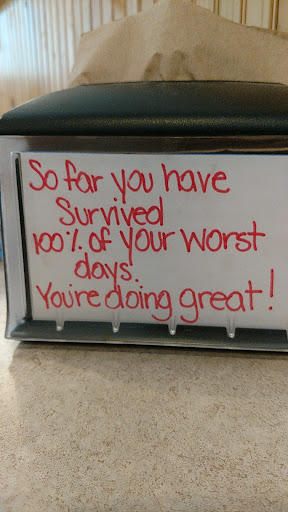 So far you have
Survived
100% of your worst
days.
You're doing great!